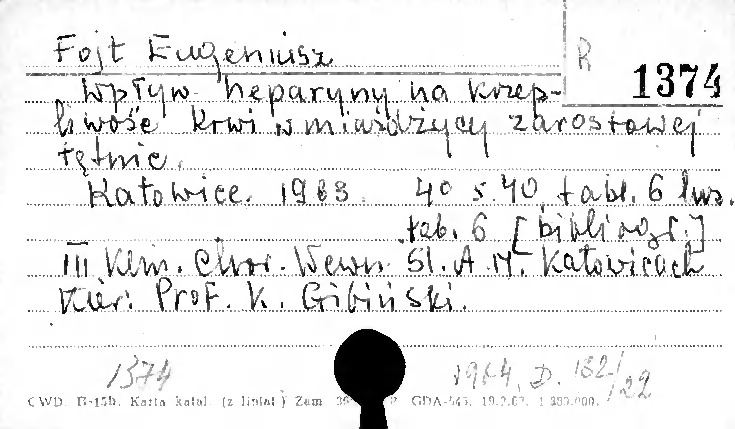 Fojt Eugeniusz
R 1374
Wpływ heparyny na krzep-
liwość krwi w miażdżycy zarostowej
tętnic.
Katowice. 1963. 4° s. 40, tabl. 6 luz.
tab. 6 [bibliogr.]
III Klin. Chor. Wewn. Śl. A. M. Katowicach
Kier. Prof. K. Gibiński.
1374 1964. D. 182/
/22
CWD B-15b. Karta katal. (z liniat.) Zam. GDA-545. 19.2.63. 1.300.000.